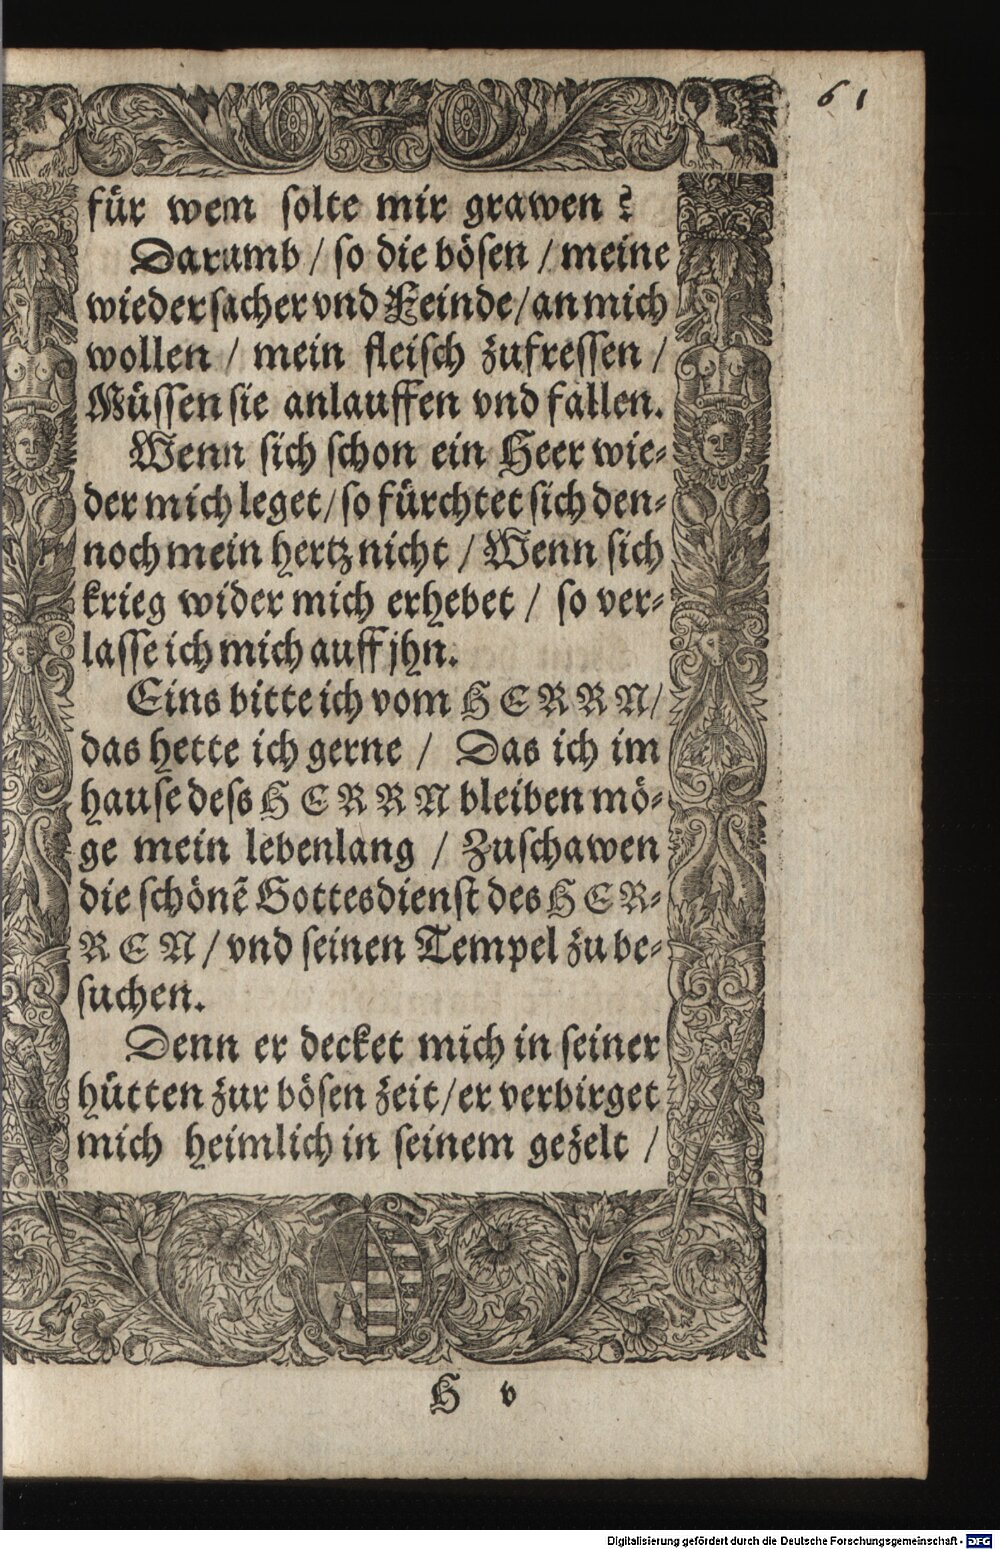 61
für wem solte mir grawen?
Darumb / so die bösen / meine
wiedersacher vnd Feinde / an mich
wollen / mein fleisch zufressen /
Müssen sie anlauffen vnd fallen.
Wenn sich schon ein Heer wie-
der mich leget / so fürchtet sich den-
noch mein hertz nicht / Wenn sich
krieg wider mich erhebet / so ver-
lasse ich mich auff jhn.
Eins bitte ich vom HERRN /
das hette ich gerne / Das ich im
hause dess HERRN bleiben mö-
ge mein lebenlang / Zuschawen
die schönẽ Gottesdienst des HER-
REN / vnd seinen Tempel zu be-
suchen.
Denn er decket mich in seiner
hütten zur bösen zeit / er verbirget
mich heimlich in seinem gezelt /
H v
Digitalisierung gefördert durch die Deutsche Forschungsgemeinschaft - DFG